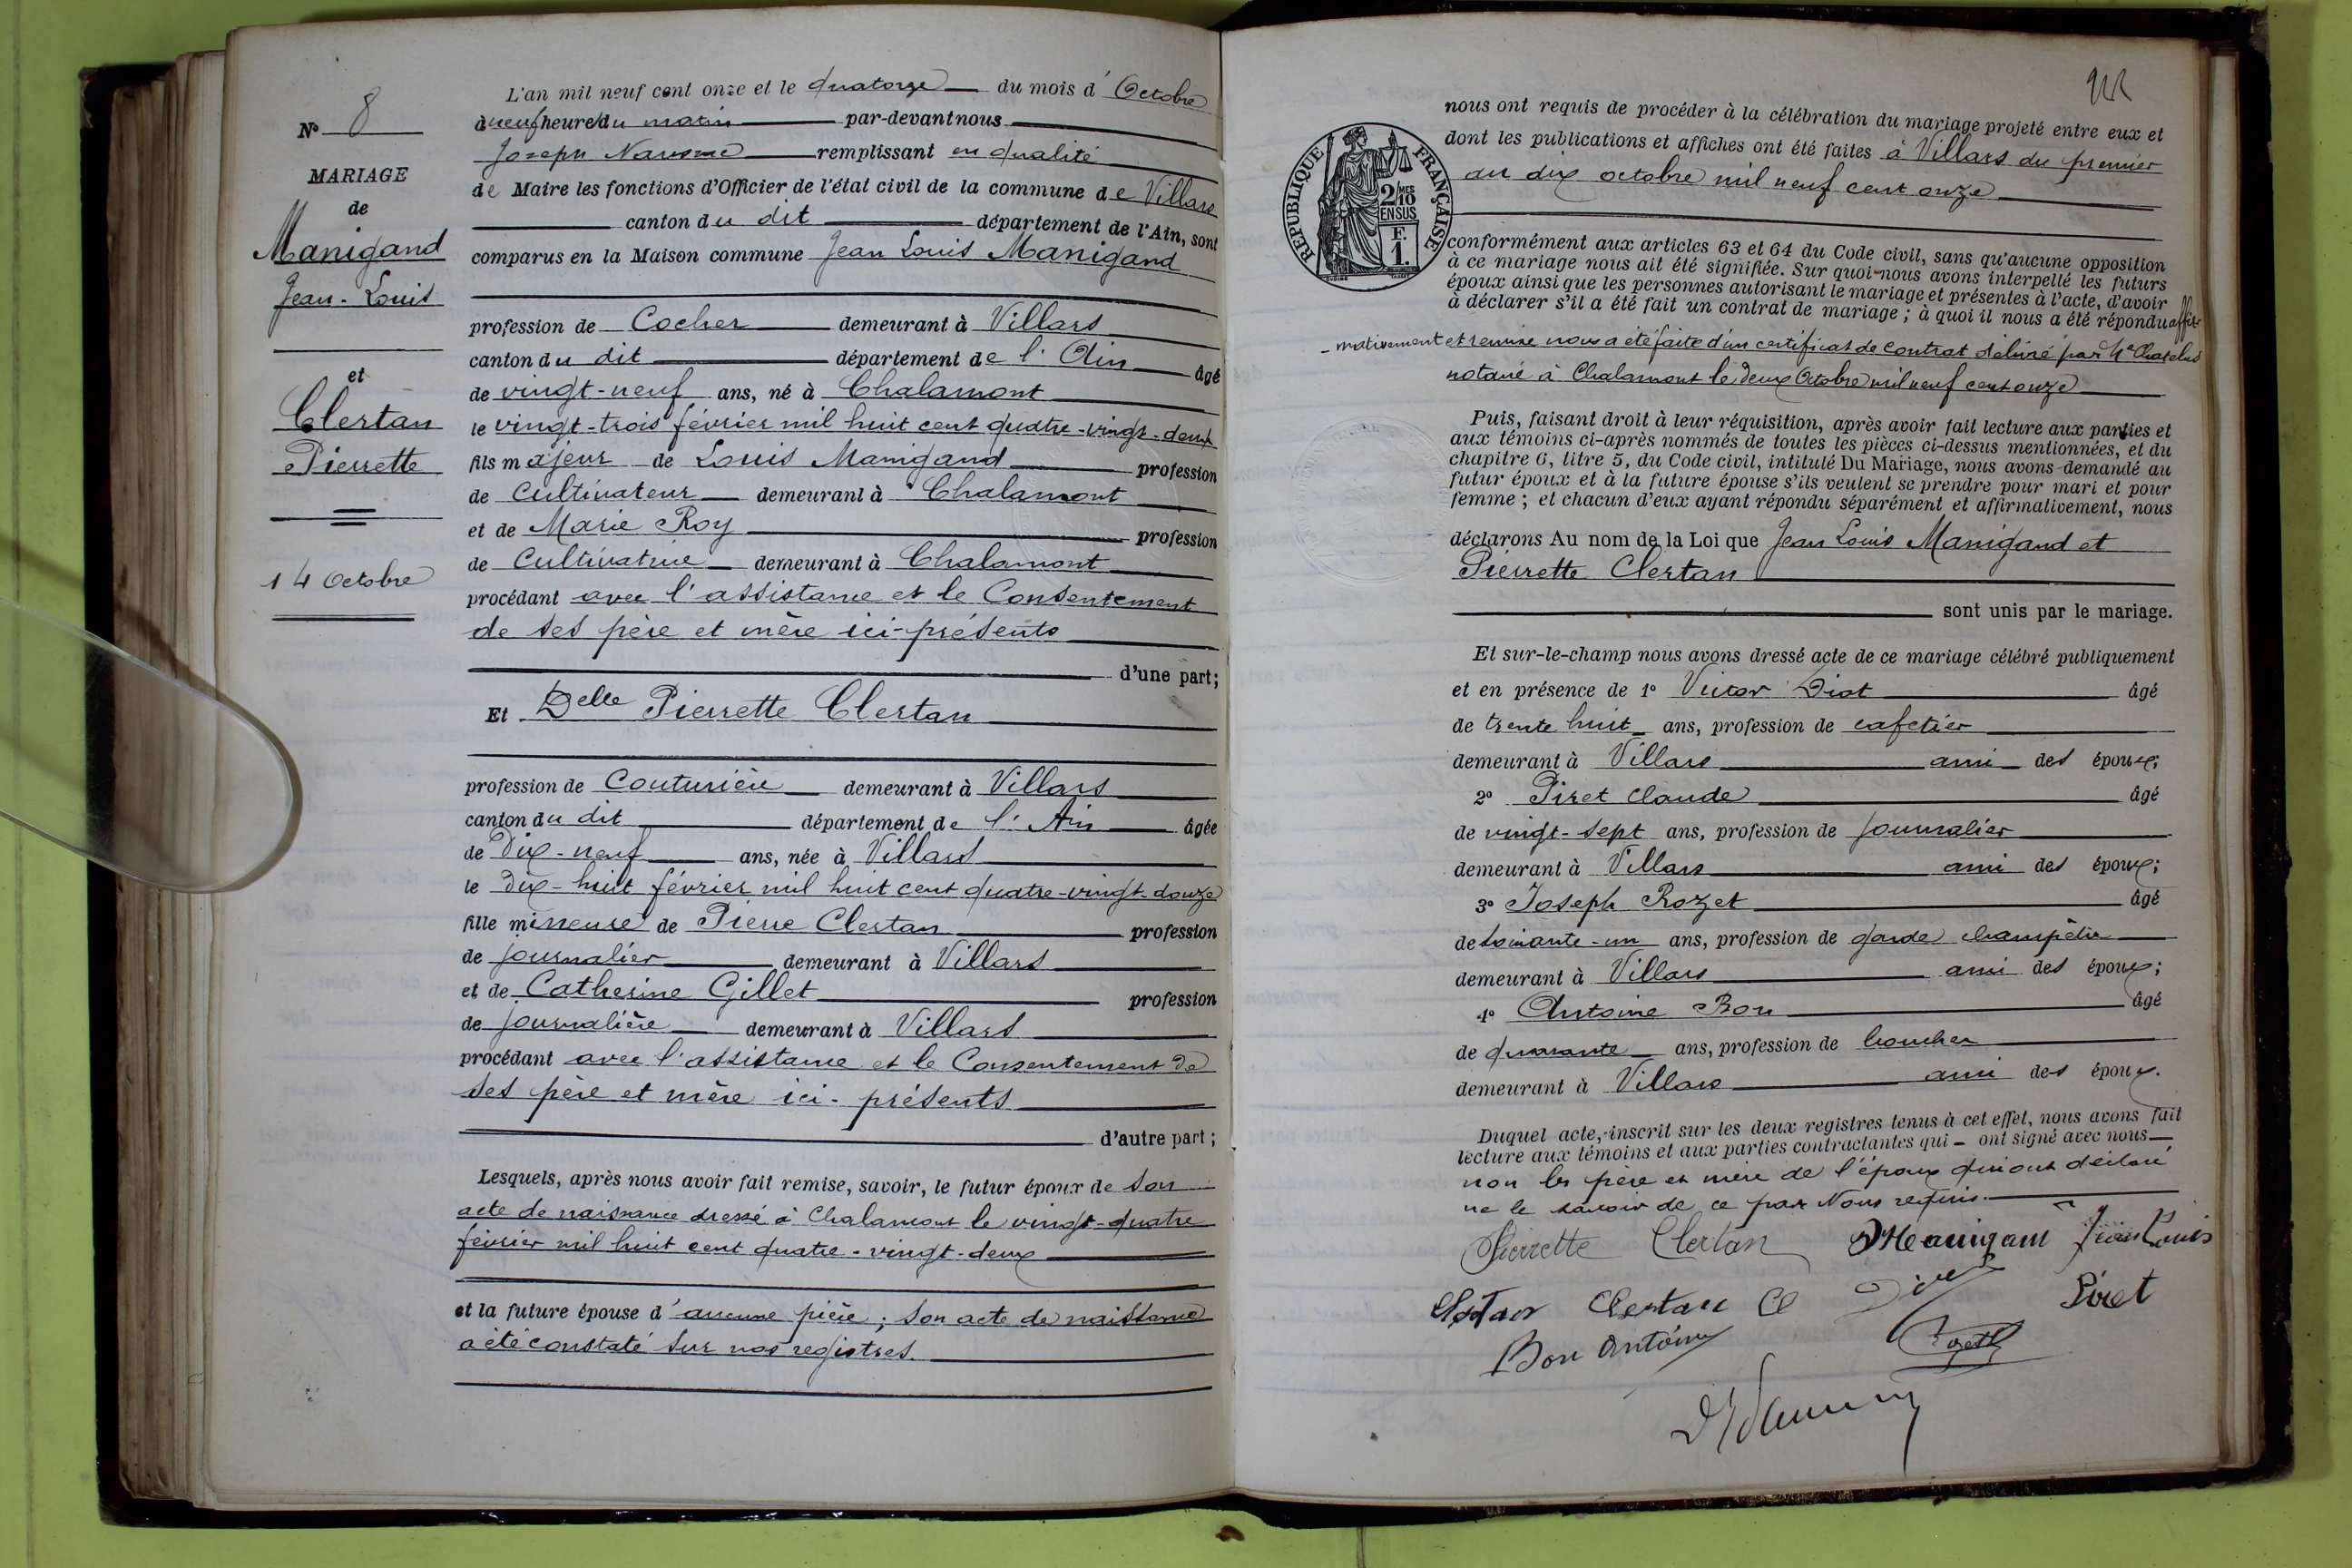 N° 8
MARIAGE
de
Manigand
Jean-Louis
et
Clertan
Pierrette
14 octobre
L'an mil neuf cent onze et le quatorze du mois d'Octobre
à neuf heures du matin par-devant nous
Joseph remplissant en qualité
de Maire les fonctions d'Officier de l'état civil de la commune de Villars
canton du dit département de l'Ain, sont
comparus en la Maison commune Jean Louis Manigand
profession de Cocher demeurant à Villars
canton du dit département de l'Ain âgé
de vingt-neuf ans, né à Chalamont
le vingt-trois février mil huit cent quatre-vingt-deux
fils majeur de Louis Manigand profession
de Cultivateur demeurant à Chalamont
et de Marie Roy profession
de Cultivatrice demeurant à Chalamont
procédant avec l'assistance et le Consentement
de ses père et mère ici-présents
d'une part;
Et Delle Pierrette Clertan
profession de Couturière demeurant à Villars
canton du dit département de l'Ain âgée
de Dix-neuf ans, née à Villars
le Dix-huit février mil huit cent quatre-vingt-douze
fille mineure de Pierre Clertan profession
de journalier demeurant à Villars
et de Catherine Gillet profession
de journalière demeurant à Villars
procédant avec l'assistance et le Consentement de
ses père et mère ici-présents
d'autre part;
Lesquels, après nous avoir fait remise, savoir, le futur époux de son
acte de naissance dressé à Chalamont le vingt-quatre
février mil huit cent quatre-vingt-deux
et la future épouse d'aucune pièce; son acte de naissance
a été constaté sur nos registres.
RÉPUBLIQUE FRANÇAISE
2/10 MES
EN SUS
F.
1.
nous ont requis de procéder à la célébration du mariage projeté entre eux et
dont les publications et affiches ont été faites à Villars du premier
au dix octobre mil neuf cent onze
conformément aux articles 63 et 64 du Code civil, sans qu'aucune opposition
à ce mariage nous ait été signifiée. Sur quoi nous avons interpellé les futurs
époux ainsi que les personnes autorisant le mariage et présentes à l'acte, d'avoir
à déclarer s'il a été fait un contrat de mariage; à quoi il nous a été répondu affir
-mativement et remise nous a été faite d'un certificat de contrat délivré par Me Chatelus
notaire à Chalamont le deux Octobre mil neuf cent onze
Puis, faisant droit à leur réquisition, après avoir fait lecture aux parties et
aux témoins ci-après nommés de toutes les pièces ci-dessus mentionnées, et du
chapitre 6, litre 5, du Code civil, intitulé Du Mariage, nous avons demandé au
futur époux et à la future épouse s'ils veulent se prendre pour mari et pour
femme; et chacun d'eux ayant répondu séparément et affirmativement, nous
déclarons Au nom de la Loi que Jean Louis Manigand et
Pierrette Clertan
sont unis par le mariage.
Et sur-le-champ nous avons dressé acte de ce mariage célébré publiquement
et en présence de 1° Victor Diot âgé
de trente huit ans, profession de cafetier
demeurant à Villars ami des époux;
2° Piret Claude âgé
de vingt-sept ans, profession de journalier
demeurant à Villars ami des époux;
3° Joseph Rozet âgé
de soixante-un ans, profession de garde champêtre
demeurant à Villars ami des époux;
4° Antoine Bon âgé
de quarante ans, profession de boucher
demeurant à Villars ami des époux.
Duquel acte, inscrit sur les deux registres tenus à cet effet, nous avons fait
lecture aux témoins et aux parties contractantes qui - ont signé avec nous
non les père et mère de l'époux qui ont déclaré
ne le savoir de ce par Nous requis.
Pierrette Clertan Manigant Jean Louis
Clertan Clertan C Piret
Bon Antoine Rozet